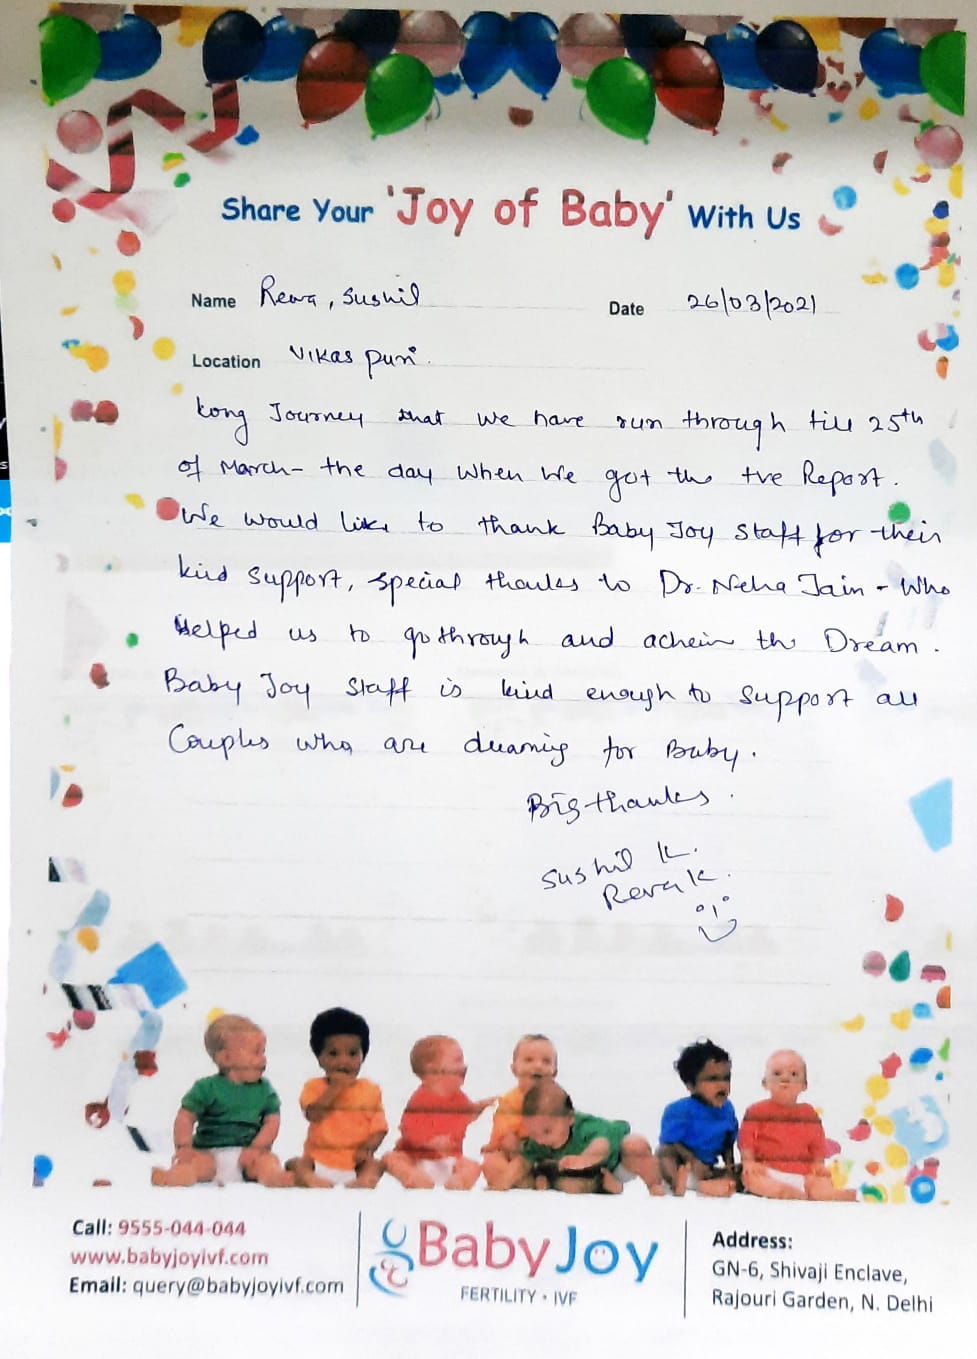 Share Your 'Joy of Baby' With Us
Name Rewa, Sushil Date 26/03/2021
Location Vikas Puri.
Long Journey that we have run through till 25th
of March- the day when we got the +ve Report.
We would like to thank Baby Joy Staff for their
kind support, special thanks to Dr. Neha Jain - Who
Helped us to go through and acheive the Dream.
Baby Joy Staff is kind enough to support all
Couples who are dreaming for Baby.
Big thanks.
Sushil K.
Reva K.
Call: 9555-044-044
www.babyjoyivf.com
Email: query@babyjoyivf.com
BabyJoy
FERTILITY • IVF
Address:
GN-6, Shivaji Enclave,
Rajouri Garden, N. Delhi